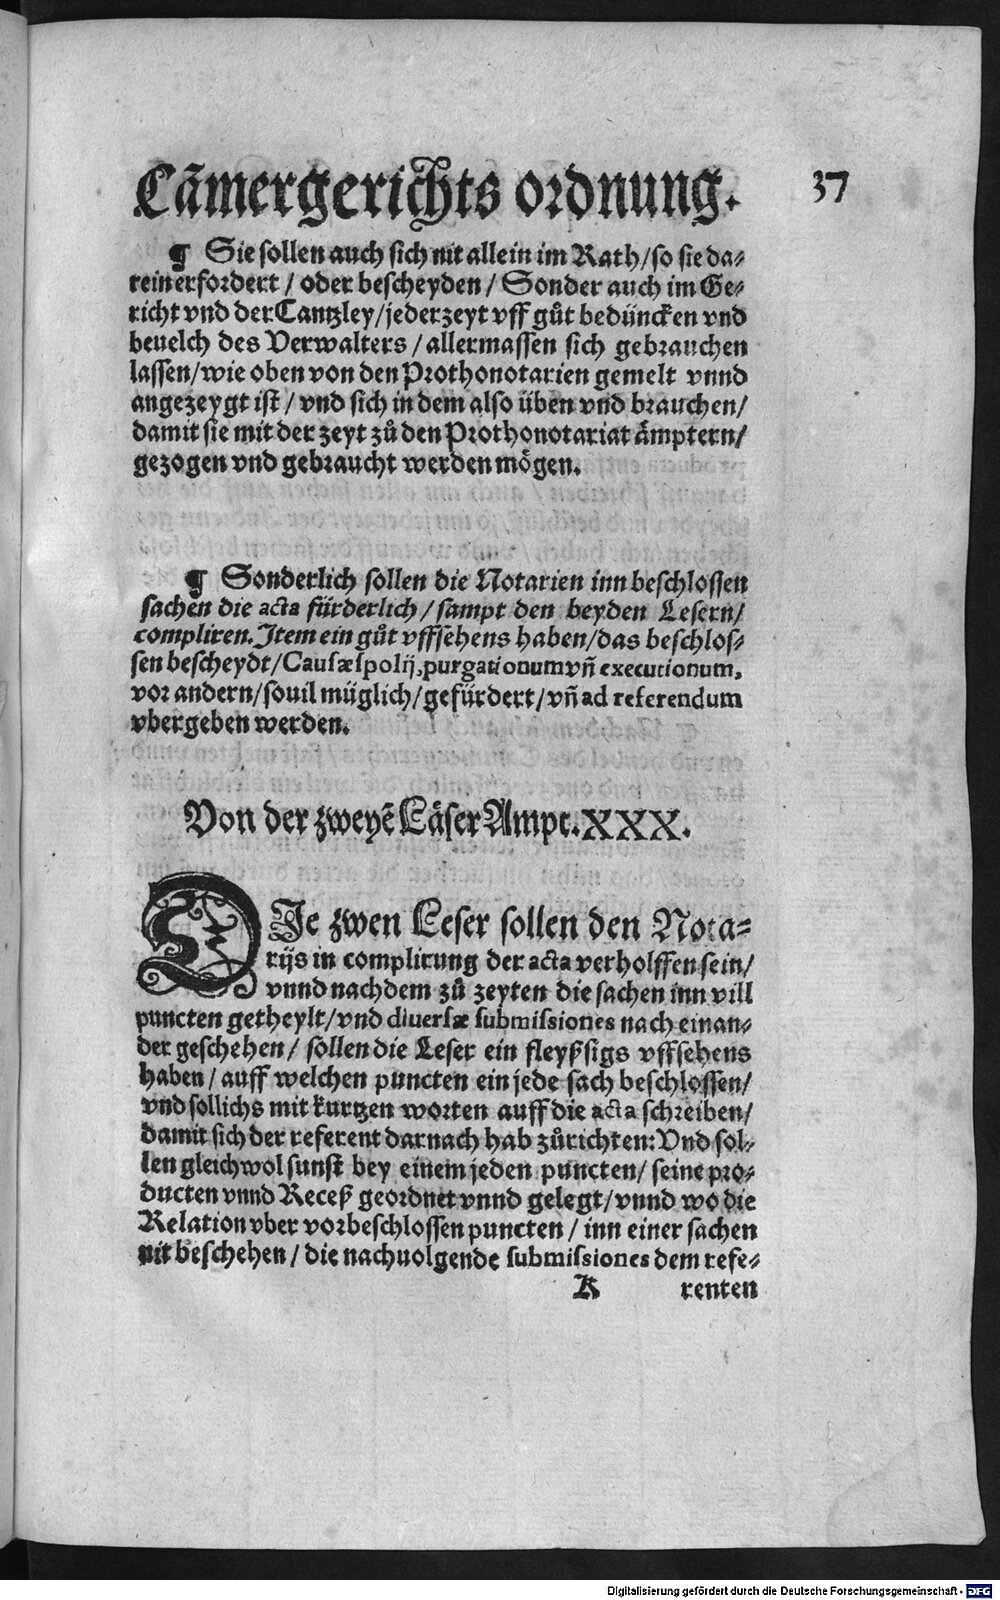 Cãmergerichts ordnung. 37
¶ Sie sollen auch sich nit allein im Rath/so sie da⸗
rein erfordert / oder bescheyden / Sonder auch im Ge⸗
richt vnd der Cantzley/jederzeyt vff gůt bedüncken vnd
beuelch des Verwalters / allermassen sich gebrauchen
lassen/wie oben von den Prothonotarien gemelt vnnd
angezeygt ist / vnd sich in dem also üben vnd brauchen/
damit sie mit der zeyt zů den Prothonotariat ämptern/
gezogen vnd gebraucht werden mögen.
¶ Sonderlich sollen die Notarien inn beschlossen
sachen die acta fürderlich / sampt den beyden Lesern/
compliren. Item ein gůt vffsehens haben/das beschlos⸗
sen bescheydt/Causæ spolij, purgationum vñ executionum,
vor andern/souil müglich/gefürdert/vñ ad referendum
vbergeben werden.
Von der zweyẽ Läser Ampt. XXX.
DJe zwen Leser sollen den Nota⸗
rijs in complirung der acta verholffen sein/
vnnd nachdem zů zeyten die sachen inn vill
puncten getheylt/vnd diuersæ submissiones nach einan⸗
der geschehen / sollen die Leser ein fleyßsigs vffsehens
haben / auff welchen puncten ein jede sach beschlossen/
vnd sollichs mit kurtzen worten auff die acta schreiben/
damit sich der referent darnach hab zůrichten: Vnd sol⸗
len gleichwol sunst bey einem jeden puncten/ seine pro⸗
ducten vnnd Receß geordnet vnnd gelegt/vnnd wo die
Relation vber vorbeschlossen puncten / inn einer sachen
nit beschehen / die nachuolgende submissiones dem refe⸗
K renten
Digitalisierung gefördert durch die Deutsche Forschungsgemeinschaft - DFG